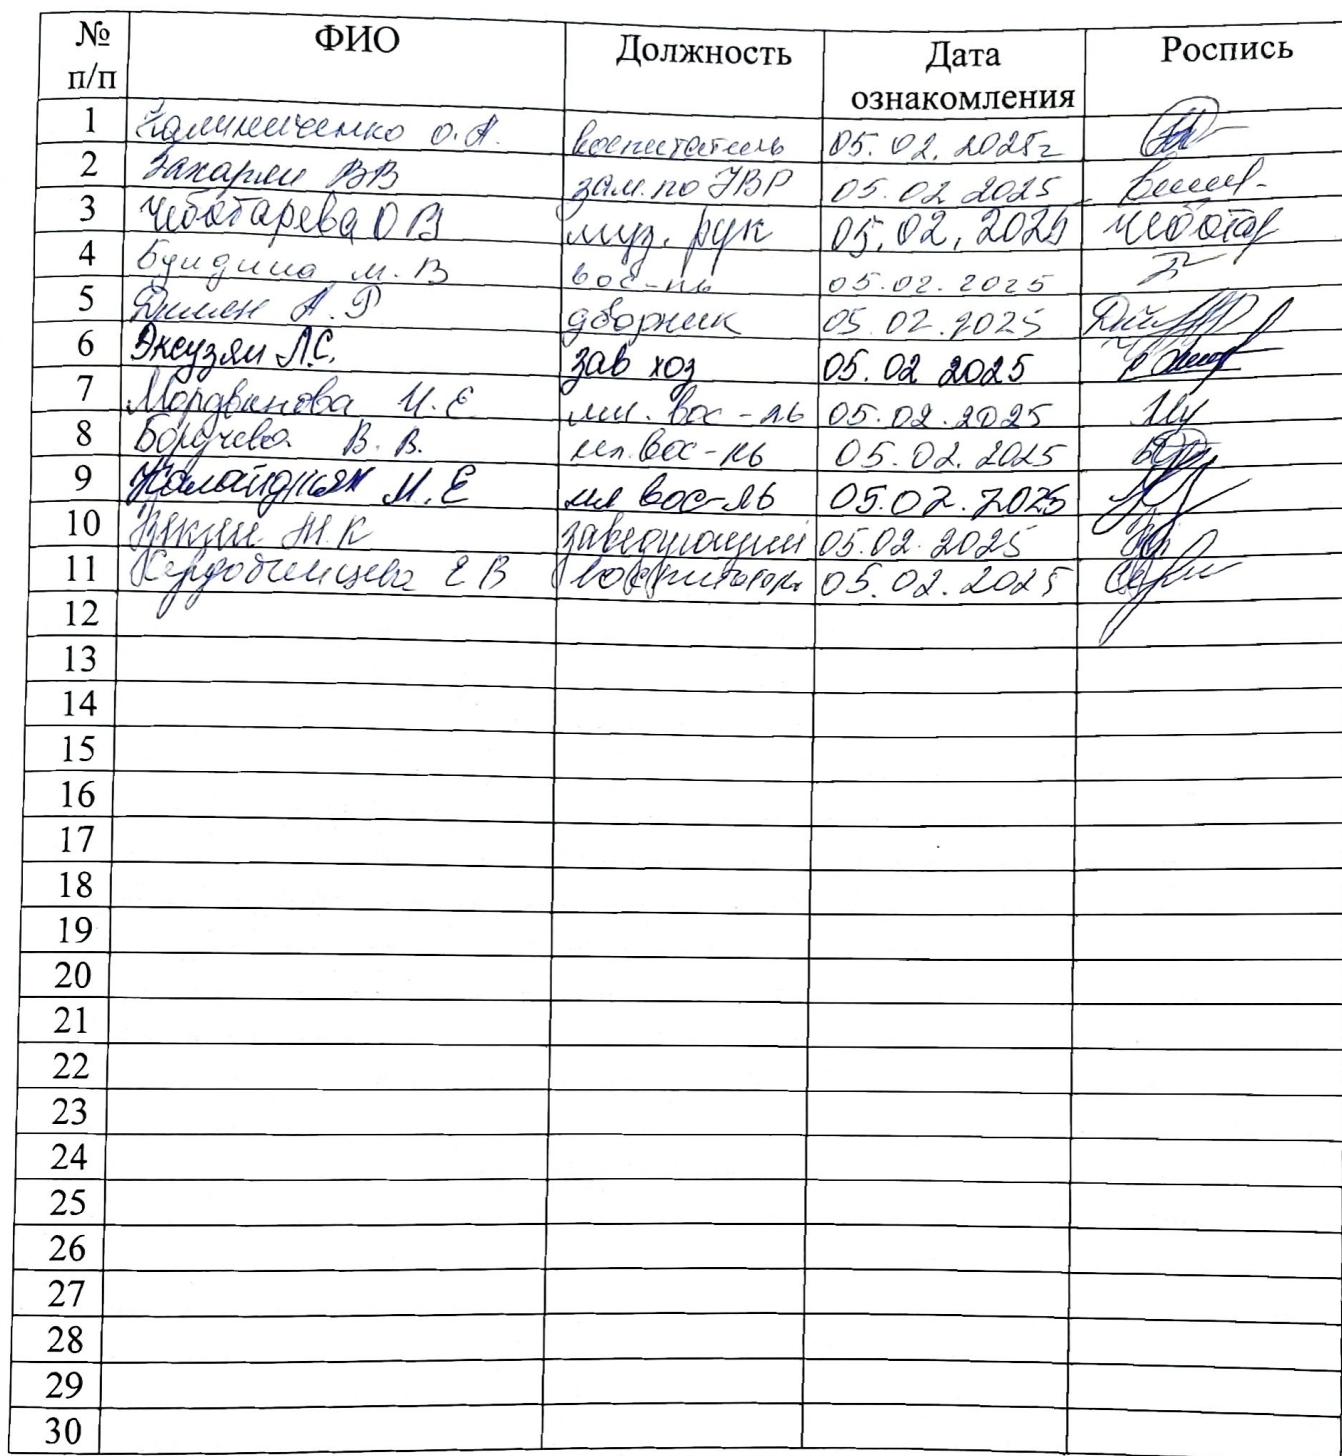 № п/п ФИО Должность Дата ознакомления Роспись
1 Калиниченко О.А. воспитатель 05.02.2025г
2 Захарян ВВ зам. по УВР 05.02 2025
3 Чеботарева О В муз. рук 05.02.2025 Чеботар
4 М. В вос-ль 05.02.2025
5 А. Р дворник 05.02.2025
6 Эксузян Л.С. зав хоз 05.02 2025
7 Мордвинова И.Е. мл. вос-ль 05.02.2025
8 В. В. мл. вос-ль 05.02.2025
9 М.Е мл вос-ль 05.02.2025
10 Ж.К заведующий 05.02.2025
11 Е В 05.02.2025
12
13
14
15
16
17
18
19
20
21
22
23
24
25
26
27
28
29
30